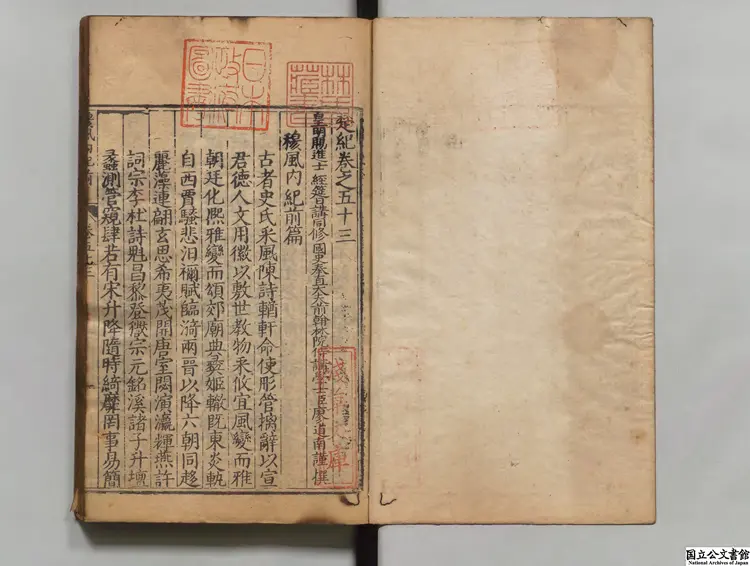 楚紀卷之五十三
皇明賜進士經筵日講同修國史奉直大夫前翰林院侍講學士臣廖道南謹撰
穆風内紀前篇
古者史氏采風陳詩輶軒命使彤管摛辭以宣
君德人文用徽以敷世教物采攸宜風變而雅
朝廷化熙雅變而頌郊廟典𡚒姬轍既東炎軌
自西賈騷悲汨禰賦臨漪兩晉以降六朝同趍
麗藻連翩玄思希夷茂開唐室閎演瀛輝燕許
詞宗李杜詩魁昌黎登徽宗元銘溪諸子升壇
蠡測管窺肆若有宋升降隨時綺靡罔事易簡
日本政府圖書
林氏藏書
淺草文庫
国立公文書館
National Archives of Japan